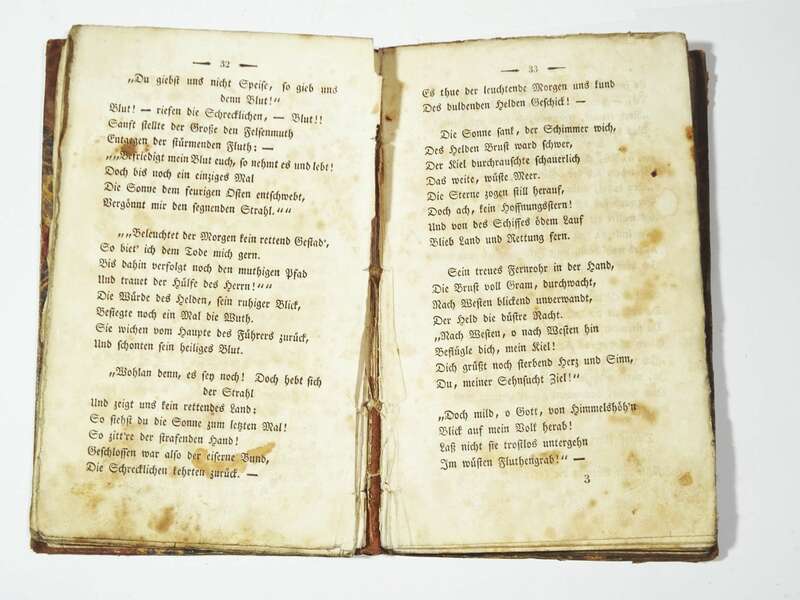 — 32 —
„Du giebst uns nicht Speise, so gieb uns
denn Blut!“
Blut! — riefen die Schrecklichen, — Blut!!
Sanft stellte der Große den Felsenmuth
Entgegen der stürmenden Fluth: —
„„Befriedigt mein Blut euch, so nehmt es und lebt!
Doch bis noch ein einziges Mal
Die Sonne dem feurigen Osten entschwebt,
Vergönnt mir den segnenden Strahl.““
„„Beleuchtet der Morgen kein rettend Gestad',
So biet' ich dem Tode mich gern.
Bis dahin verfolgt noch den muthigen Pfad
Und trauet der Hülfe des Herrn!““
Die Würde des Helden, sein ruhiger Blick,
Besiegte noch ein Mal die Wuth.
Sie wichen vom Haupte des Führers zurück,
Und schonten sein heiliges Blut.
„Wohlan denn, es sey noch! Doch hebt sich
der Strahl
Und zeigt uns kein rettendes Land:
So siehst du die Sonne zum letzten Mal!
So zitt're der strafenden Hand!
Geschlossen war also der eiserne Bund,
Die Schrecklichen kehrten zurück. —
— 33 —
Es thue der leuchtende Morgen uns kund
Des duldenden Helden Geschick! —
Die Sonne sank, der Schimmer wich,
Des Helden Brust ward schwer,
Der Kiel durchrauschte schauerlich
Das weite, wüste Meer.
Die Sterne zogen still herauf,
Doch ach, kein Hoffnungsstern!
Und von des Schiffes ödem Lauf
Blieb Land und Rettung fern.
Sein treues Fernrohr in der Hand,
Die Brust voll Gram, durchwacht,
Nach Westen blickend unverwandt,
Der Held die düstre Nacht.
„Nach Westen, o nach Westen hin
Beflügle dich, mein Kiel!
Dich grüßt noch sterbend Herz und Sinn,
Du, meiner Sehnsucht Ziel!“
„Doch mild, o Gott, von Himmelshöh'n
Blick auf mein Volk herab!
Laß nicht sie trostlos untergehn
Im wüsten Fluthengrab!“ —
3